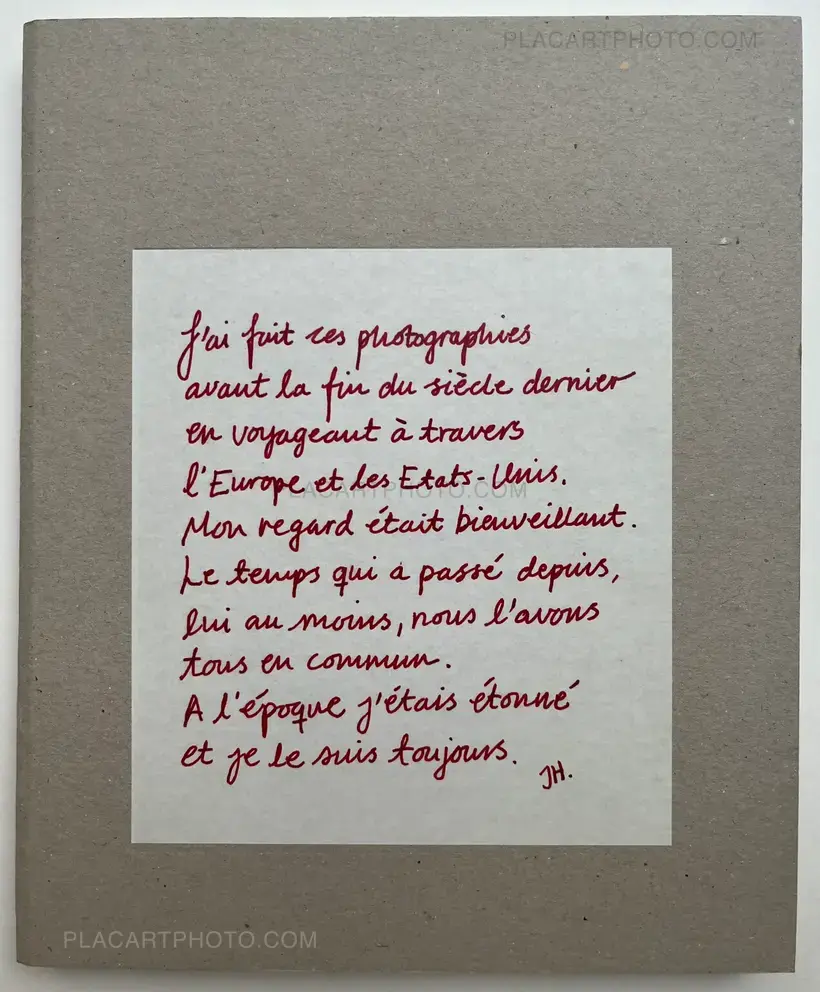 PLACARTPHOTO.COM
J'ai fait ces photographies
avant la fin du siècle dernier
en voyageant à travers
l'Europe et les Etats-Unis.
PLACARTPHOTO.COM
Mon regard était bienveillant.
Le temps qui a passé depuis,
lui au moins, nous l'avons
tous en commun.
A l'époque j'étais étonné
et je le suis toujours.
JH.
PLACARTPHOTO.COM